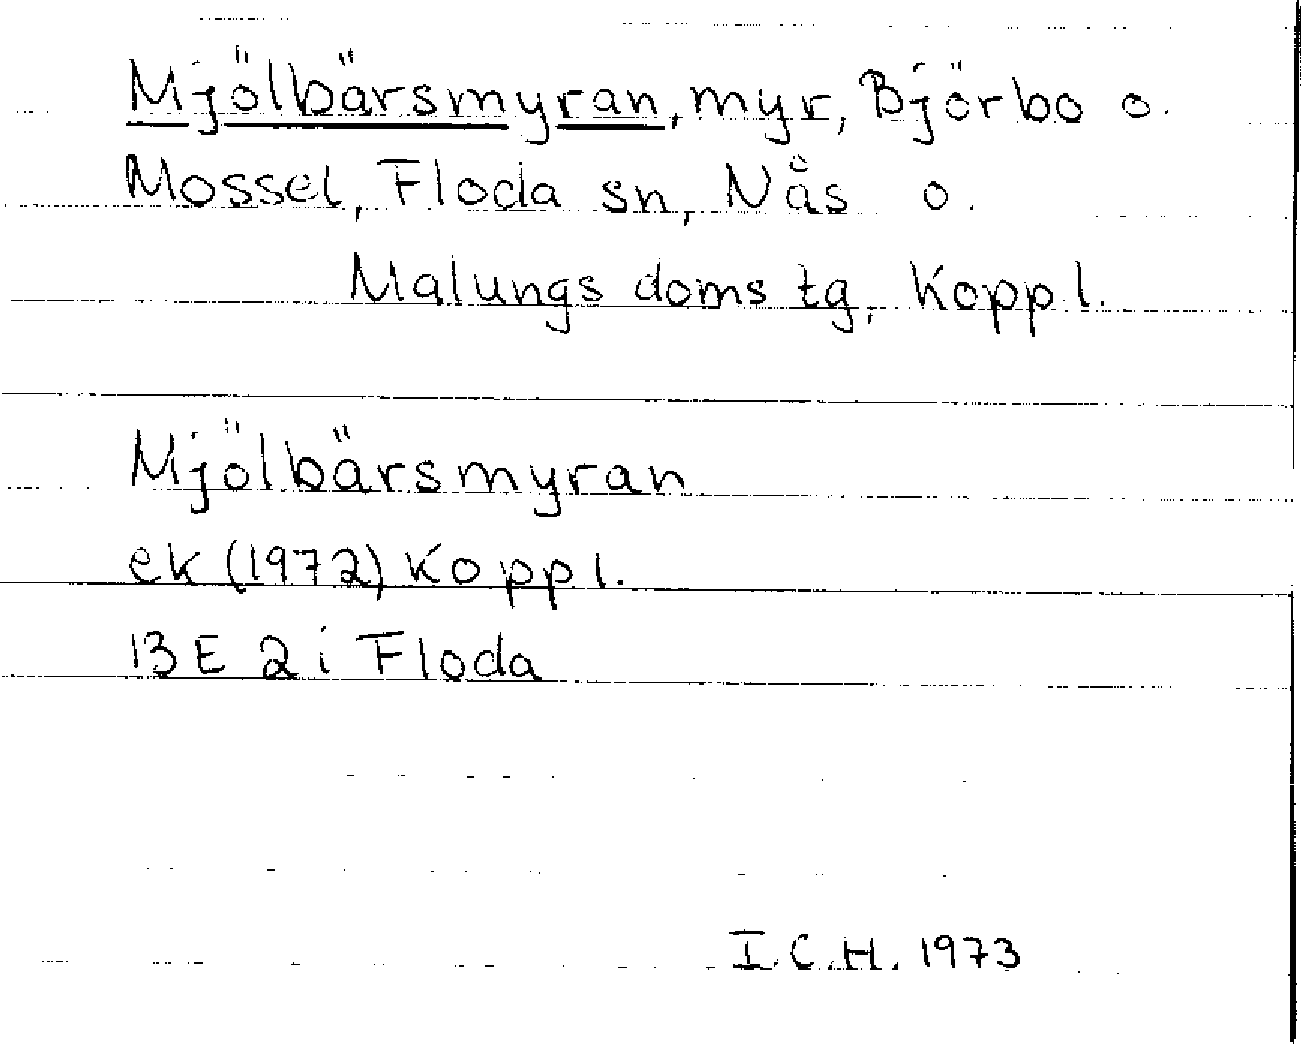 Mjölbärsmyran, myr, Björbo o.
Mossel, Floda sn, Nås o.
Malungs doms tg, Koppl.
Mjölbärsmyran
ek (1972) Koppl.
13 E 2 i Floda
I.C.H. 1973